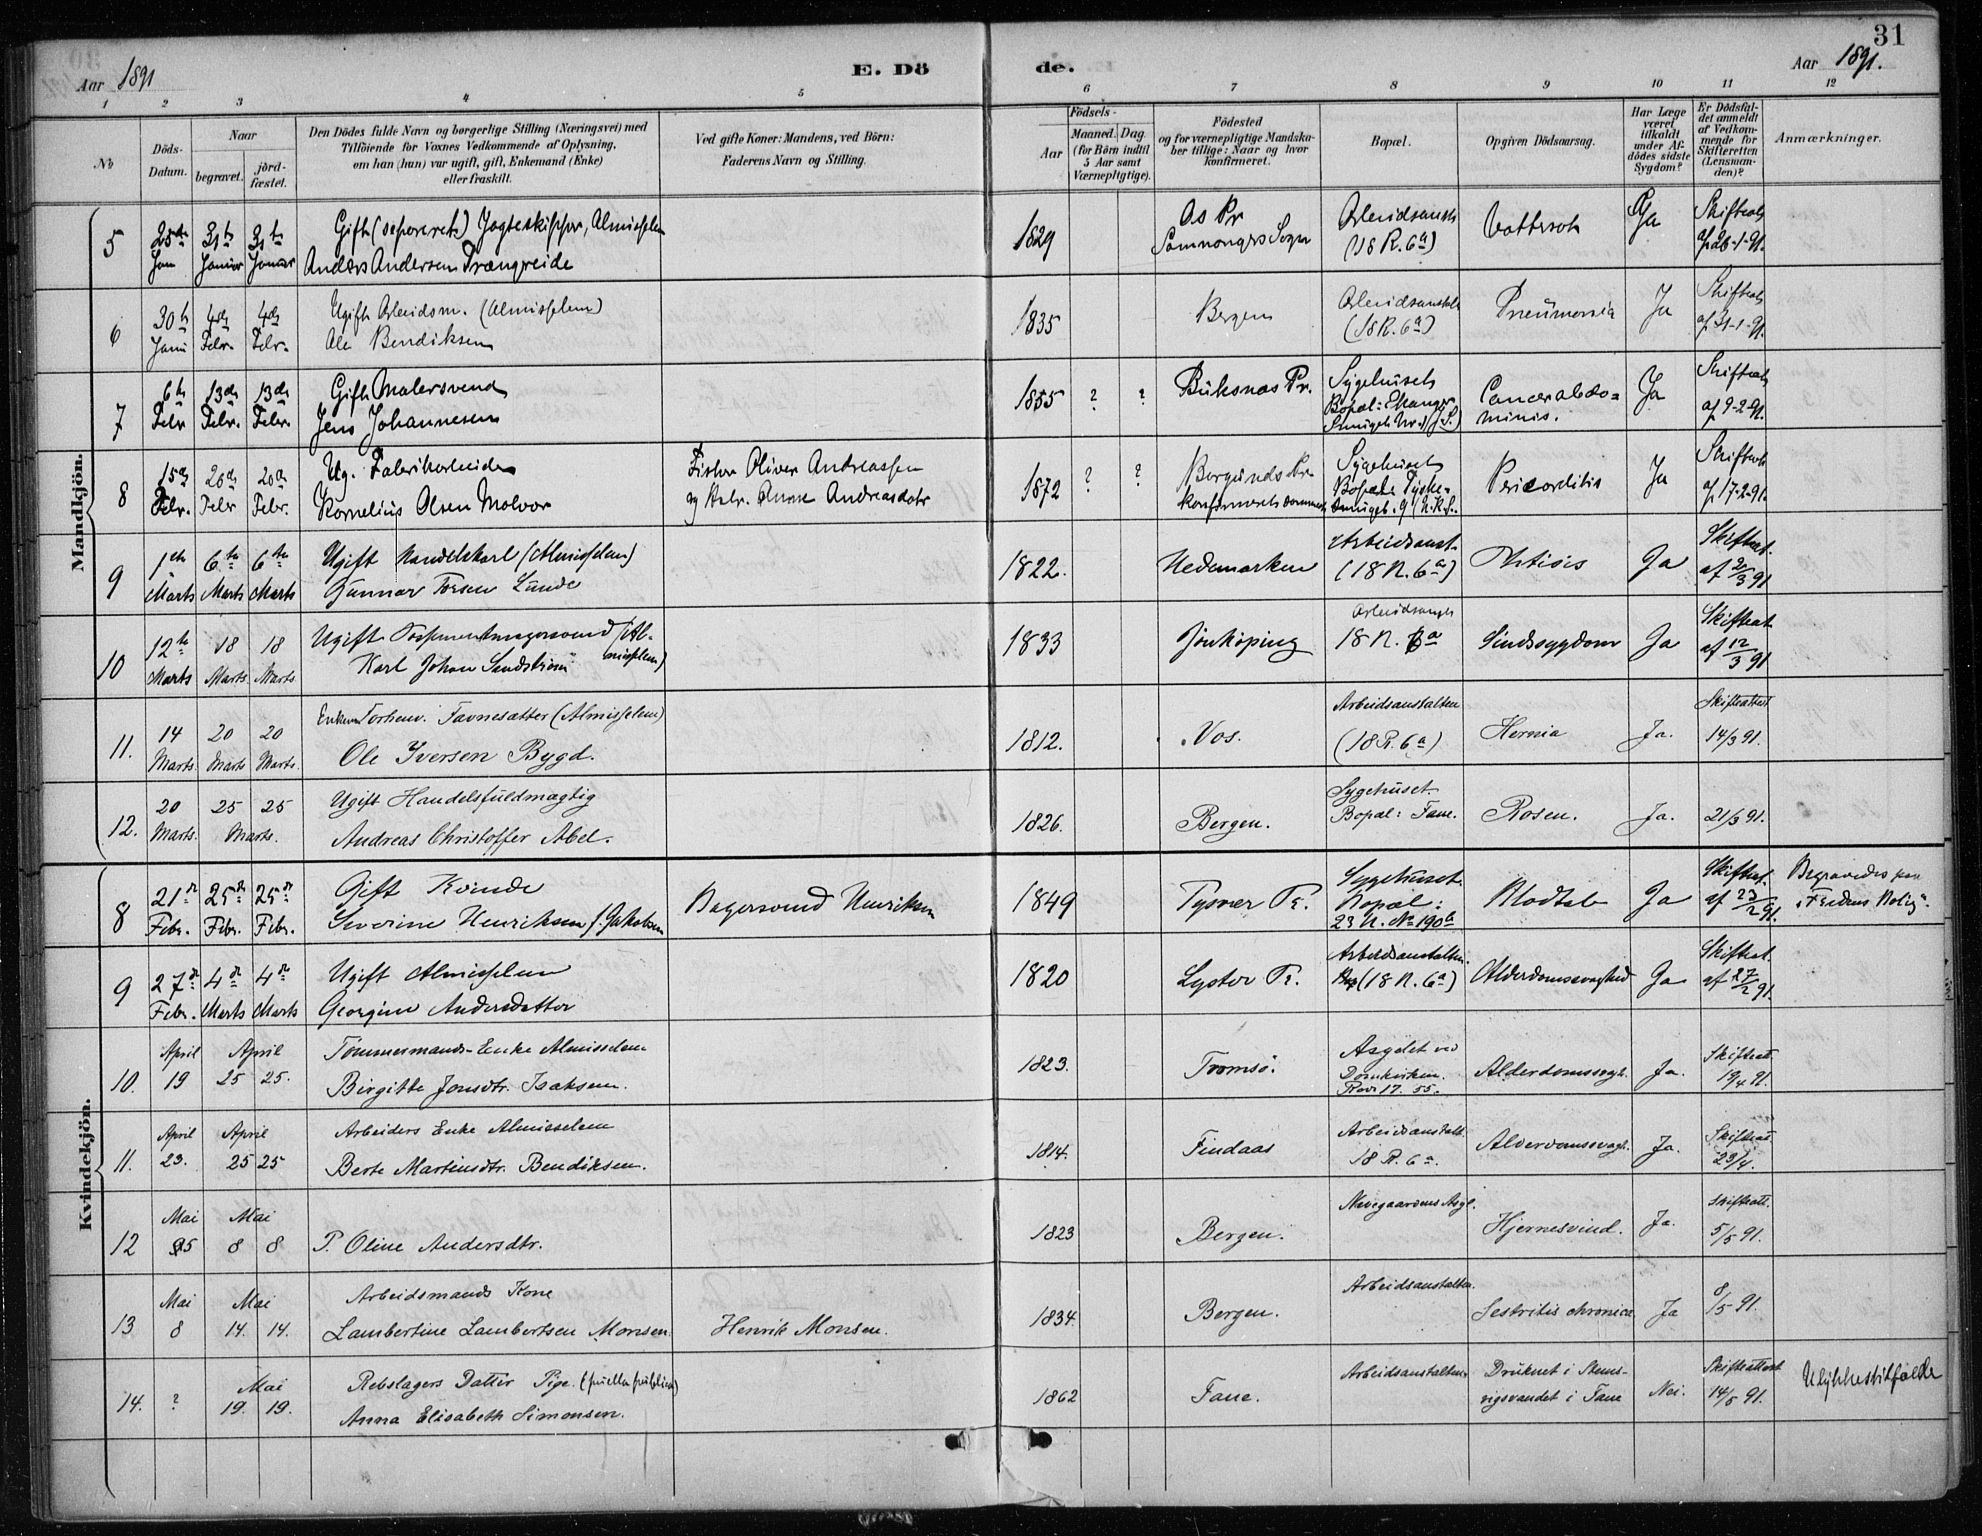 31
Aar 1891
E. Dö
de.
Aar 1891.
1 2 3 4 5 6 7 8 9 10 11 12
No
Döds-Datum.
Naar
begravet.
jord-fæstet.
Den Dödes fulde Navn og borgerlige Stilling (Næringsvei) med
Tilföiende for Voxnes Vedkommende af Oplysning,
om han (hun) var ugift, gift, Enkemand (Enke)
eller fraskilt.
Ved gifte Koner: Mandens, ved Börn:
Faderens Navn og Stilling.
Födsels-
Aar
Maaned. Dag.
(for Börn indtil
5 Aar samt
Værnepligtige).
Födested
og for værnepligtige Mandska-
ber tillige: Naar og hvor
konfirmeret.
Bopæl.
Opgiven Dödsaarsag.
Har Læge
været
tilkaldt
under Af-
dödes sidste
Sygdom?
Er Dödsfal-
det anmeldt
af Vedkom-
mende for
Skifteretten
(Lensman-
den)?
Anmærkninger.
Mandkjön.
5 25de Jan 31te Januar 31te Januar
Gift (separeret) Jagteskipper, Almisselem
Anders Andersen Trængreide
1829
Os Pr
Samnangers Sogn
Arbeidsanst
(18 R. 6a)
Vattersot
Ja
Skifteat
af 26-1-91.
6 30te Janu 4de Febr. 4de Febr.
Ugift Arbeidsm. (Almisselem)
Ole Bendiksen
1835
Bergen
Arbeidsanst
(18 R. 6a)
Pneumonia
Ja
Skifteat
af 31-1-91.
7 6te Febr 13de Febr. 13de Febr.
Gift Malersvend
Jens Johannesen
1855 ? ?
Buksnæs Pr.
Sygehuset
Bopæl:
Cancer abdo=
minis.
Ja
Skifteat
af 9-2-91.
8 15de Febr. 20de Febr 20de Febr.
Ug. Fabrikarbeider
Kornelius Olsen Molvær
Fisker Oliver Andreassen
og Hstr. Anne Andreasdotr
1872 ? ?
Borgunds Pr.
konfirmeret sammest
Sygehuset
Bopæl: Tyske-
smuget. 9 (N.K.S.
Pericarditis
Ja
Skifteat
af 17-2-91.
9 1ste Marts 6te Marts 6te Marts
Ugift Handelskarl (Almisselem)
Gunnar Toresen Lunde
1822.
Hedemarken
Arbeidsanst.
(18 R. 6a)
Ja
Skifteat.
af 2/3 91
10 12te Marts 18 Marts. 18 Marts.
Ugift (Almisselem)
Karl Johan Sandström
1833
Jönköping
Arbeidsanst
18 R. 6a
Sindssygdom
Ja
Skifteat.
af 12/3 91
11. 14 Marts. 20 Marts 20 Marts.
Enkem. Forhenv. Favnesætter (Almisselem)
Ole Iversen Bygd.
1812.
Vos.
Arbeidsanstalten
(18 R. 6a)
Hernia
Ja.
Skifteattest
14/3 91.
12. 20 Marts. 25 25 Marts.
Ugift Handelsfuldmægtig
Andreas Christoffer Abel.
1826.
Bergen.
Sygehuset.
Bopæl: Fane.
Rosen.
Ja.
21/3 91.
Kvindekjön.
8 21de Febr. 25de Febr. 25de Febr.
Gift Kvinde
Severine Henriksen f. Jakobsen
Bagersvend Henriksen
1849
Tysvær Pr.
Sygehuset.
Bopæl:
23 R. No 190b
Blodtab
Ja
Skifteat.
af 23/2 91.
Begravedes paa
"Fredens Bolig".
9 27de Febr. 4de Marts 4de Marts
Ugift Almisselem
Georgine Andersdatter
1820
Lyster Pr.
Arbeidsanstalten.
(18 R. 6a)
Alderdomssvaghed
Ja
Skifteat.
af 27/2 91.
10. April 19 April 25 25.
Tömmermands-Enke Almisselem
Birgitte Jonsdtr. Isaksen.
1823.
Tromsö.
Asylet ved
Domkirken.
Rode 17. 55.
Alderdomssvgh.
Ja.
Skifteatt.
19/4 91.
11. April 23. April 25 25
Arbeiders Enke Almisselem
Berte Martinsdtr. Bendiksen.
1814.
Findaas
Arbeidsanstalt.
18 R. 6a.
Alderdomssvgh.
Ja.
Skifteatt.
23/4.
12 Mai 5 Mai 8 8
P. Oline Andersdtr.
1823
Bergen.
Navegaardens Asyl.
Hjernesvind.
Ja.
Skifteatt.
5/5 91.
13 Mai 8 Mai 14. 14.
Arbeidsmands Kone
Lambertine Lambertsen Monsen.
Henrik Monsen.
1834.
Bergen.
Arbeidsanstalten.
chronica
Ja
8/5 91.
14. ? Mai 19. 19.
Rebslagers Datter Pige. (puella publica)
Anna Elisabeth Simonsen.
1862
Fane.
Arbeidsanstalten.
Druknet i Stens-
vigsvandet i Fane
Nei.
Skifteattest
14/5 91.
Ulykkestilfælde